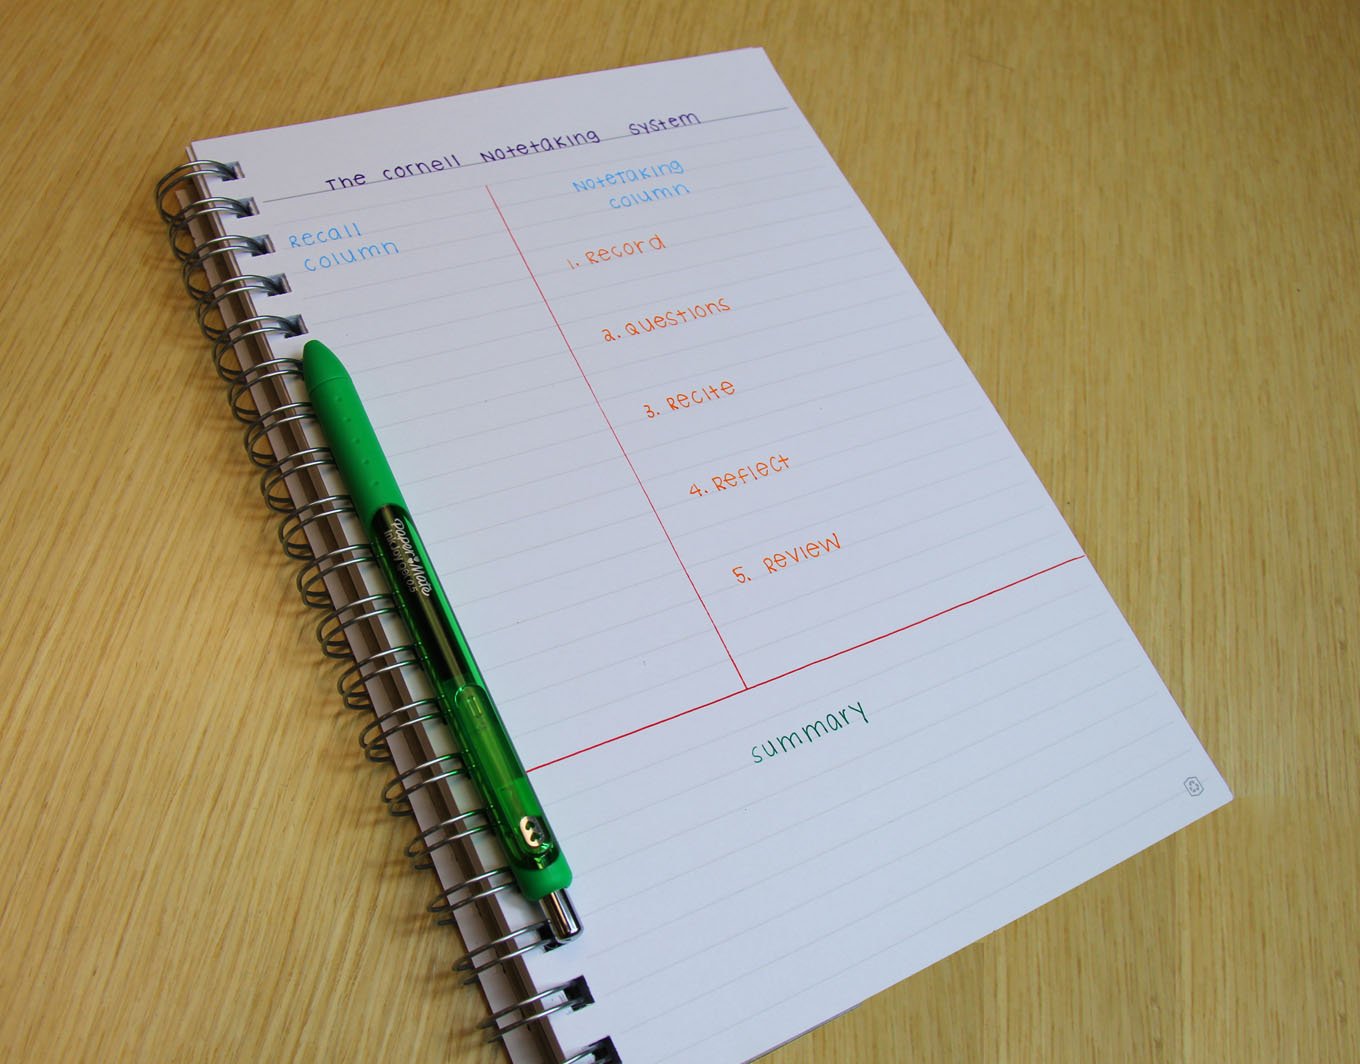 The cornell Notetaking system
Recall
column
Notetaking
column
1. Record
2. Questions
3. Recite
4. Reflect
5. Review
summary
Paper Mate
InkJoy Gel 0.5